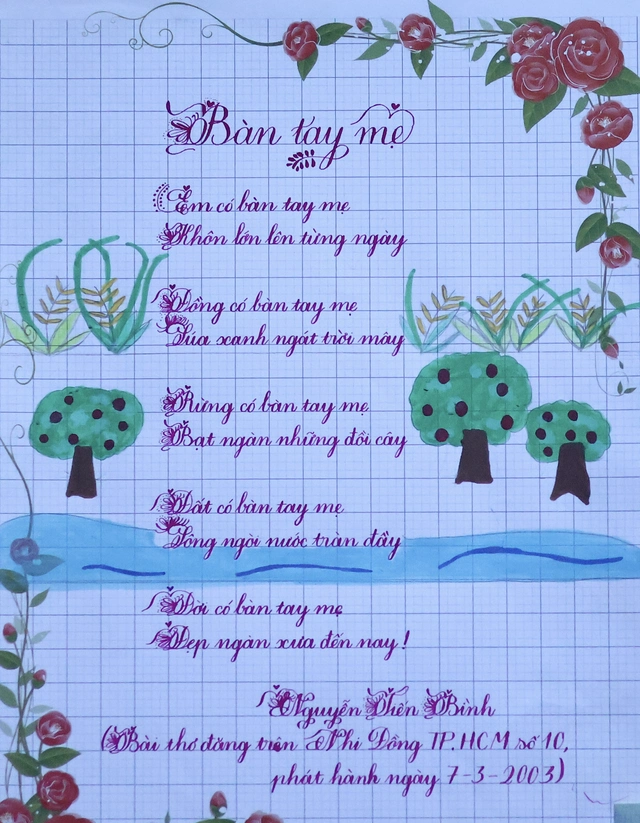 Bàn tay mẹ
Em có bàn tay mẹ
Khôn lớn lên từng ngày
Đồng có bàn tay mẹ
Lúa xanh ngát trời mây
Rừng có bàn tay mẹ
Bạt ngàn những đồi cây
Đất có bàn tay mẹ
Sông ngòi nước tràn đầy
Đời có bàn tay mẹ
Đẹp ngàn xưa đến nay!
Nguyễn Tiến Bình
(Bài thơ đăng trên Nhi Đồng TP.HCM số 10,
phát hành ngày 7-3-2003)